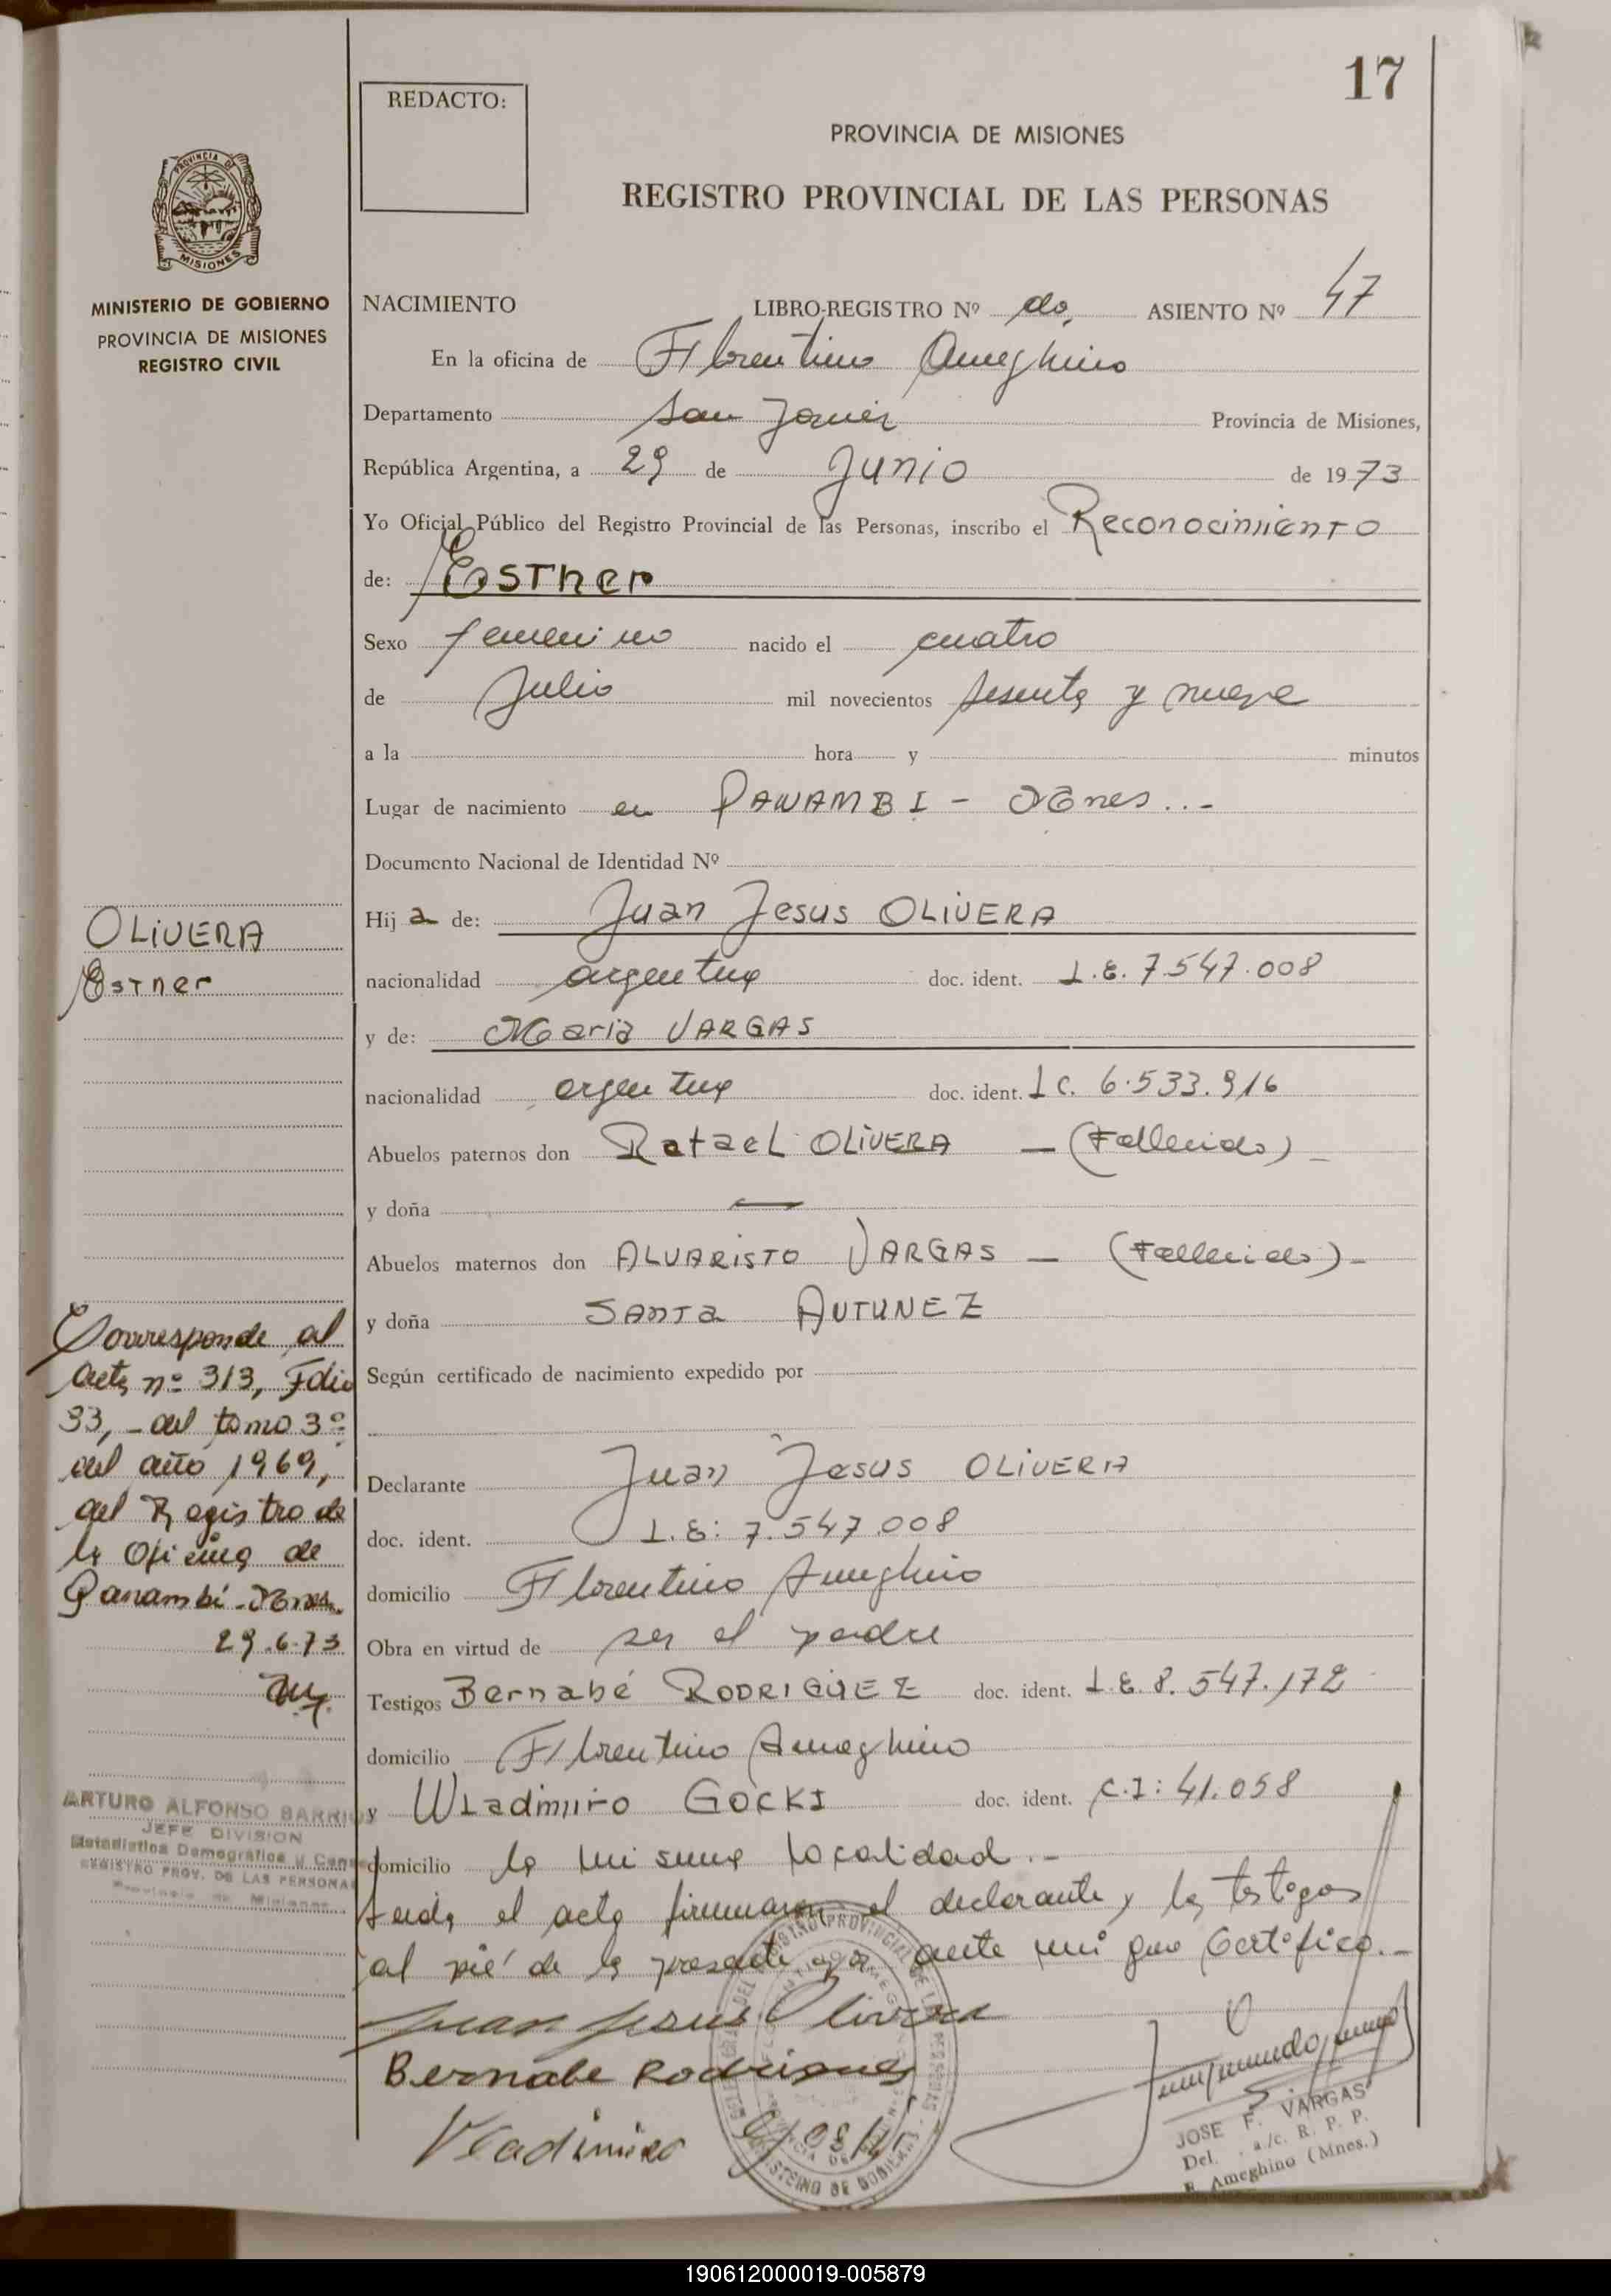 17
REDACTO:
PROVINCIA DE MISIONES
REGISTRO PROVINCIAL DE LAS PERSONAS
PROVINCIA DE
MISIONES
MINISTERIO DE GOBIERNO
PROVINCIA DE MISIONES
REGISTRO CIVIL
NACIMIENTO LIBRO-REGISTRO Nº do, ASIENTO Nº 47
En la oficina de Florentino Ameghino
Departamento San Javier Provincia de Misiones,
República Argentina, a 29 de Junio de 1973
Yo Oficial Público del Registro Provincial de las Personas, inscribo el Reconocimiento
de: Esther
Sexo femenino nacido el cuatro
de Julio mil novecientos sesenta y nueve
a la hora y minutos
Lugar de nacimiento en PANAMBI - Mnes...-
Documento Nacional de Identidad Nº
Hija de: Juan Jesus OLIVERA
nacionalidad argentina doc. ident. L.E. 7.547.008
y de: Maria VARGAS
nacionalidad argentina doc. ident. L C. 6.533.916
Abuelos paternos don Rafael OLIVERA — (Fallecido) -
y doña —
Abuelos maternos don ALVARISTO VARGAS — (Fallecido) -
y doña SANTA ANTUNEZ
Según certificado de nacimiento expedido por
Declarante Juan Jesus OLIVERA
doc. ident. L.E: 7.547.008
domicilio Florentino Ameghino
Obra en virtud de ser el padre
Testigos Bernabé RODRIGUEZ doc. ident. L.E. 8.547.172
domicilio Florentino Ameghino
y Wladimiro GOCKI doc. ident. C.I: 41.058
domicilio la misma localidad.-
Leida el acta firmaron el declarante y los testigos
al pié de la presente ante mi que Certifico.-
Juan Jesus Olivera
Bernabe Rodrigues
Vladimiro
OLIVERA
Esther
Corresponde al
acta nº 313, Folio
33, - del tomo 3º
del año 1969,
del Registro de
la Oficina de
Panambí - Mnes.
29.6.73
ARTURO ALFONSO BARRIOS
JEFE DIVISION
Estadistica Demografica y Cens
REGISTRO PROV. DE LAS PERSONAS
Provincia de Misiones
JOSE F. VARGAS
Del. a/c. R. P. P.
F. Ameghino (Mnes.)
190612000019-005879